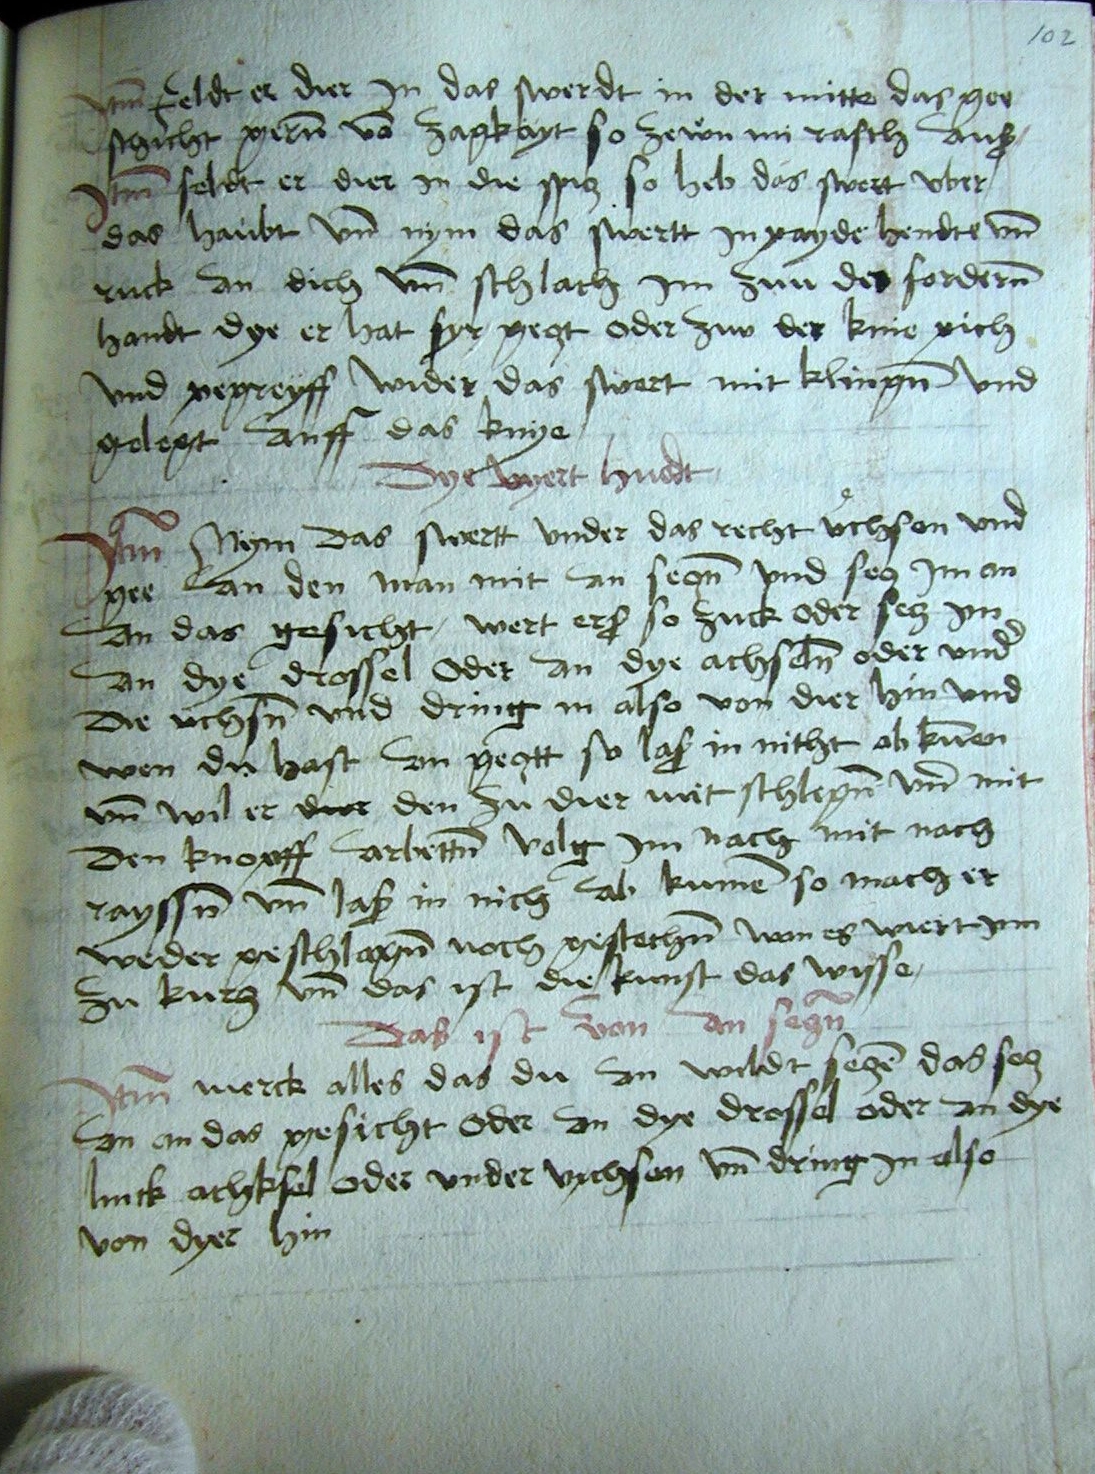 102
Itm Feldt er dier In das swerdt in der mitte das gee
schicht gern vō zagkayt so zewn im rasch auß
Itm feldt er dier in die spiz so heb das swert vber
das haubt vn̄ nym das swertt in payde hendte vn̄
ruck an dich vn̄ schlach Im zuu der fordern̄
handt dye er hat fyr geezt oder zuo der knie pich
vnd pegreyff wider das swert mit klingn̄ vnd
gelegt auff das knye
Dye vyert hudt
Itm Nym das swertt vnder das recht vͤchsen vnd
gee an den man mit an seczn̄ vnd secz Im an
an das gesicht wert erß so zuck oder secz im
an dye drossel oder an dye achseln̄ oder vnd̕
die v̈chsn̄ vnd dring in also von dier hin vnd
wen du hast an geeztt so laß in nitht ab kum̄en
vn̄ wil er den zu dier mit schlegn̄ vn̄ mit
den knopff arbettn̄ volg Im nach mit nach
rayssn̄ vn̄ laß in nich ab kumē so mach er
weder geschlagn̄ noch gestechn̄ won es wiert ym
zu kurcz vn̄ das ist die kunst das wysse
Das ist von an seczn̄
Itm merck alles das du an wildt seczē das secz
an an das gesicht oder an dye drossel oder an dye
linck achksel oder vnder vchsen vn̄ dring In also
von dyer hin